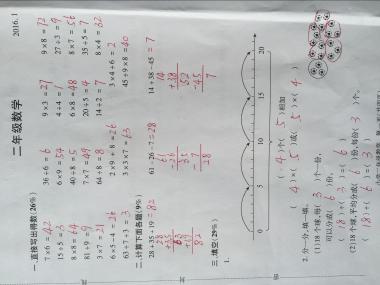 二年级数学 2016.1
一.直接写出得数(26%)
7×6=42 36÷6=6 9×3=27 9×8=72
15÷5=3 6×9=54 4÷4=1 27÷3=9
8×8=64 40÷8=5 6×8=48 8×7=56
81÷9=9 7×7=49 20÷5=4 35÷5=7
3×7=21 64÷8=8 14÷2=7 8×4=32
6×5-4=26 2×9+8=26 3×4÷6=2
63÷7÷3=3 3×3×7=63 45÷9×8=40
二.计算下面各题(9%)
28+35+19=82 61-26-7=28 14+38-45=7
28 61 14
+35 -26 +38
63 35 52
+19 -7 -45
82 28 7
三.填空(29%)
1.
0 5 10 15 20
(4)个(5)相加
(4)×(5)或(5)×(4)
2.分一分,填一填。
(1)18个球,每(3)个一份,
可以分成(6)份。
(18)÷(3)=(6)
(2)18个球,平均分成(6)份,每份(3)个。